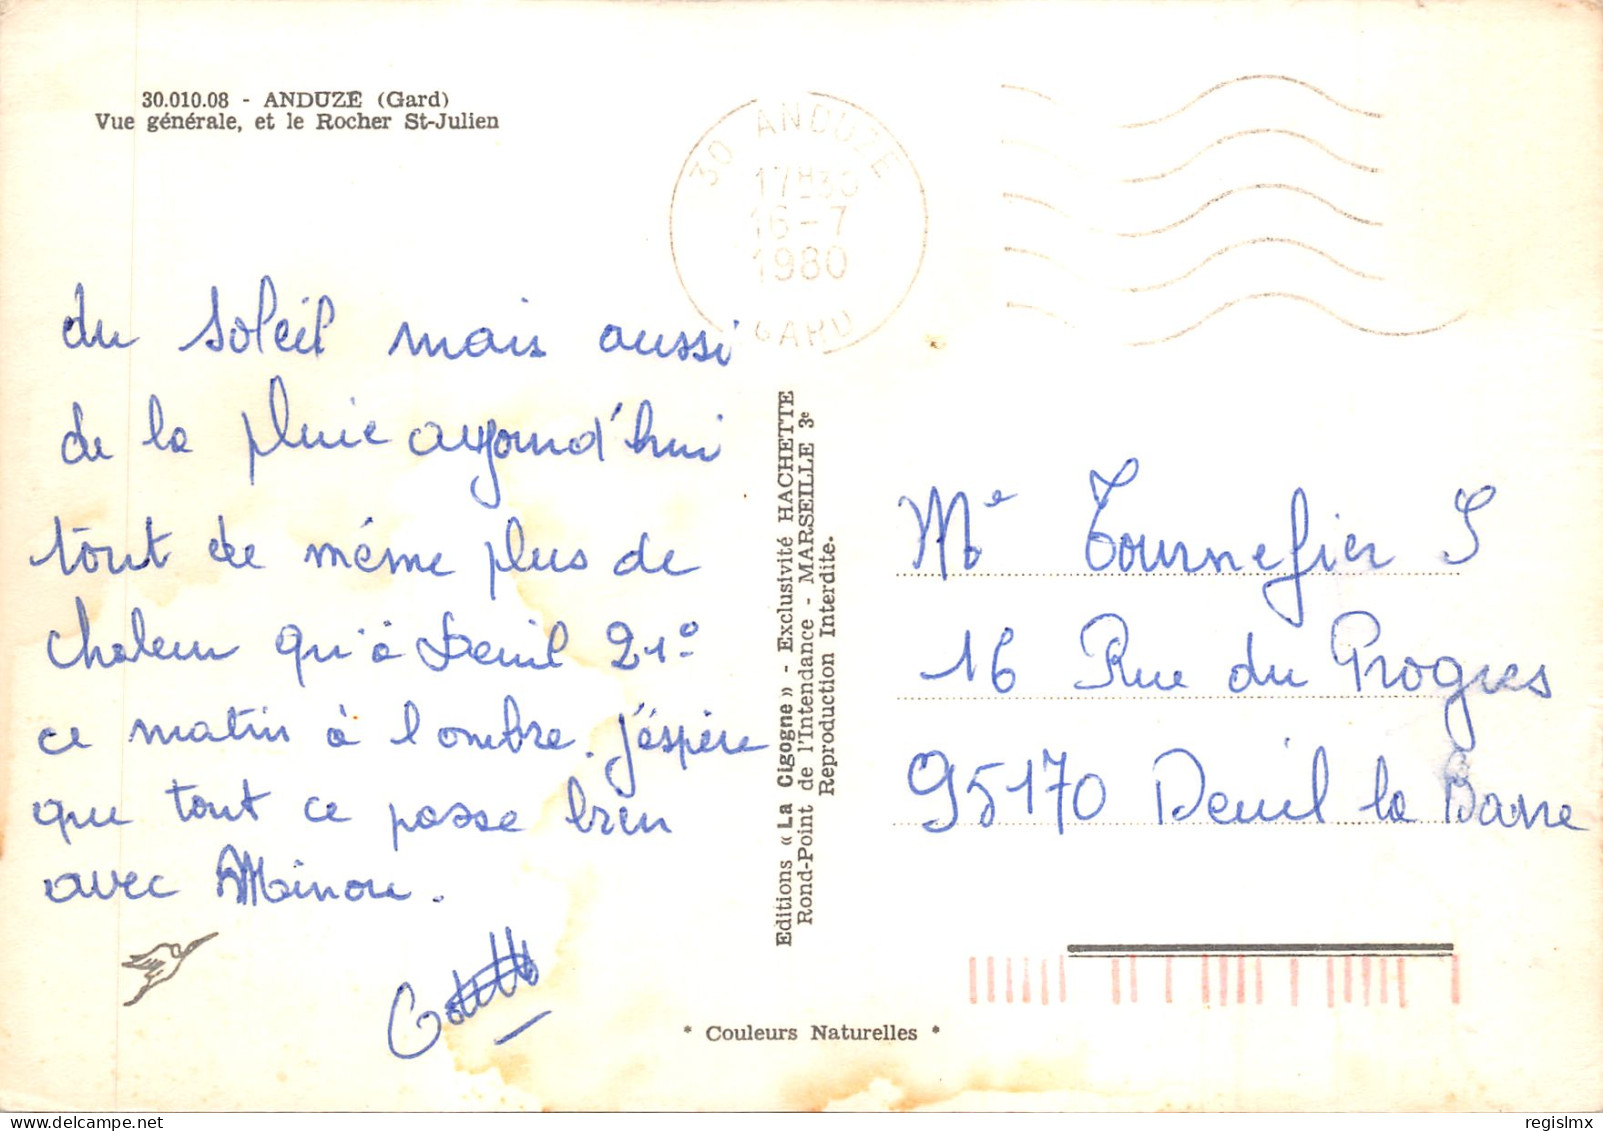 30.010.08 - ANDUZE (Gard)
Vue générale, et le Rocher St-Julien
30 ANDUZE
17H30
16-7
1980
GARD
du soleil mais aussi
de la pluie aujourd'hui
tout de même plus de
chaleur qu'à Deuil 21°
ce matin à l ombre. J'éspère
que tout ce passe bien
avec Minou.
Editions « La Cigogne » - Exclusivité HACHETTE
Rond-Point de l'Intendance - MARSEILLE 3e
Reproduction Interdite.
Me Tournefier S
16 Rue du Progres
95170 Deuil la Barre
* Couleurs Naturelles *
regislmx